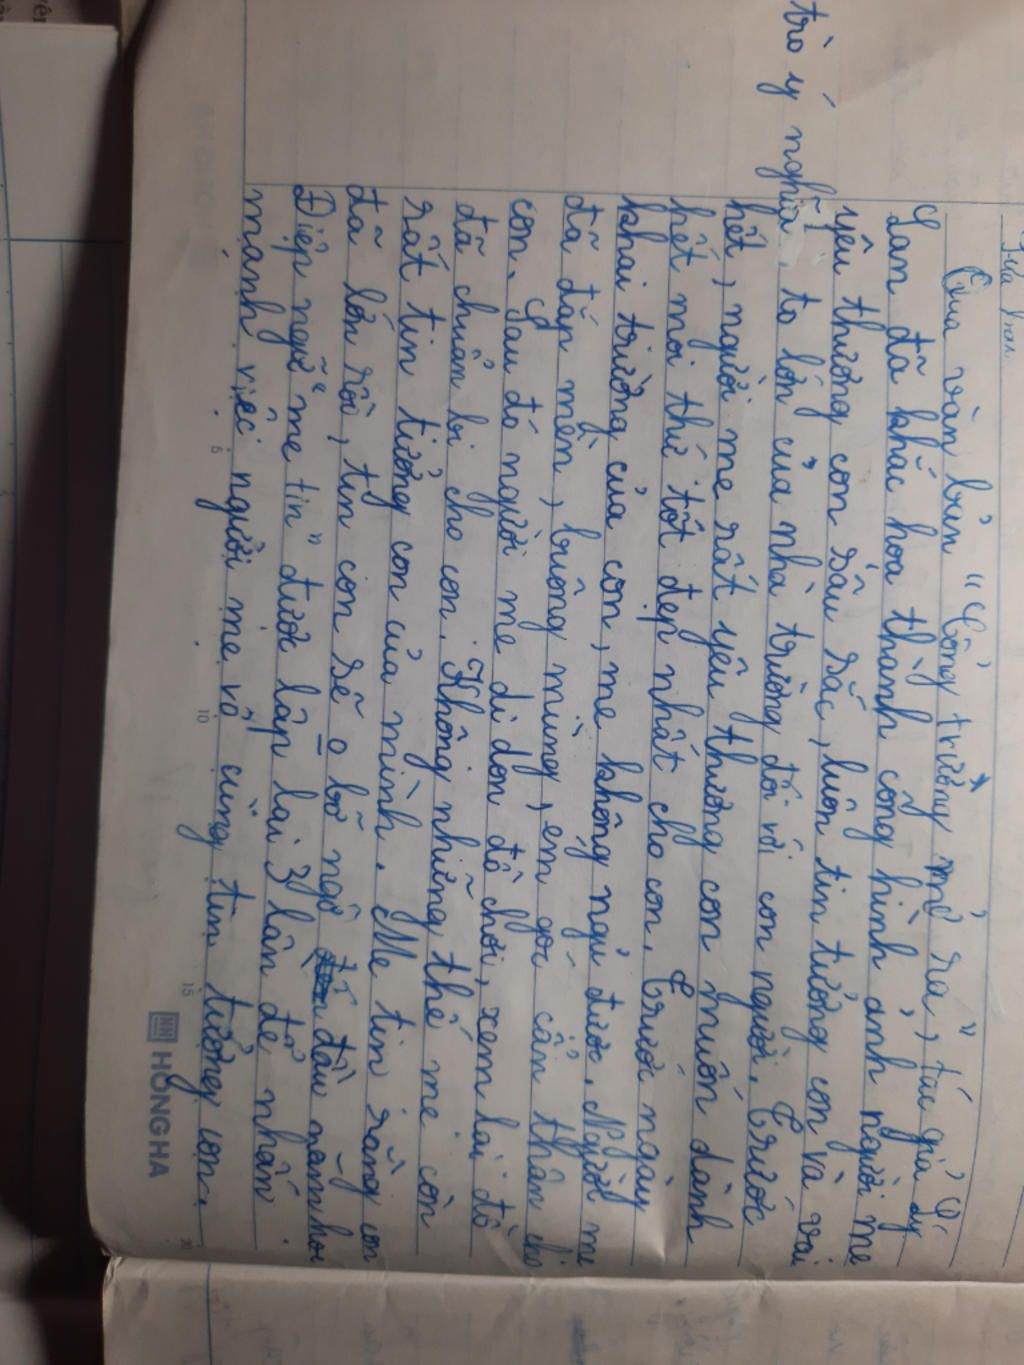 Qua văn bản "Cổng trường mở ra", tác giả Lý
Lan đã khắc hoạ thành công hình ảnh người mẹ
yêu thương con sâu sắc, luôn tin tưởng con và vai
trò ý nghĩa to lớn của nhà trường đối với con người. Trước
hết, người mẹ rất yêu thương con muốn dành
hết mọi thứ tốt đẹp nhất cho con. Trước ngày
khai trường của con, mẹ không ngủ được. Người mẹ
đã đắp mền, buông mùng, ém gối cẩn thận cho
con. Sau đó người mẹ đi dọn đồ chơi, xem lại đồ
đã chuẩn bị cho con. Không những thế mẹ còn
rất tin tưởng con của mình. Mẹ tin rằng con
đã lớn rồi, tin con sẽ o bỡ ngỡ đầu năm học
Điệp ngữ "mẹ tin" được lặp lại 3 lần để nhấn
mạnh việc người mẹ vô cùng tin tưởng con.
5
10
15
20
HH HONG HA